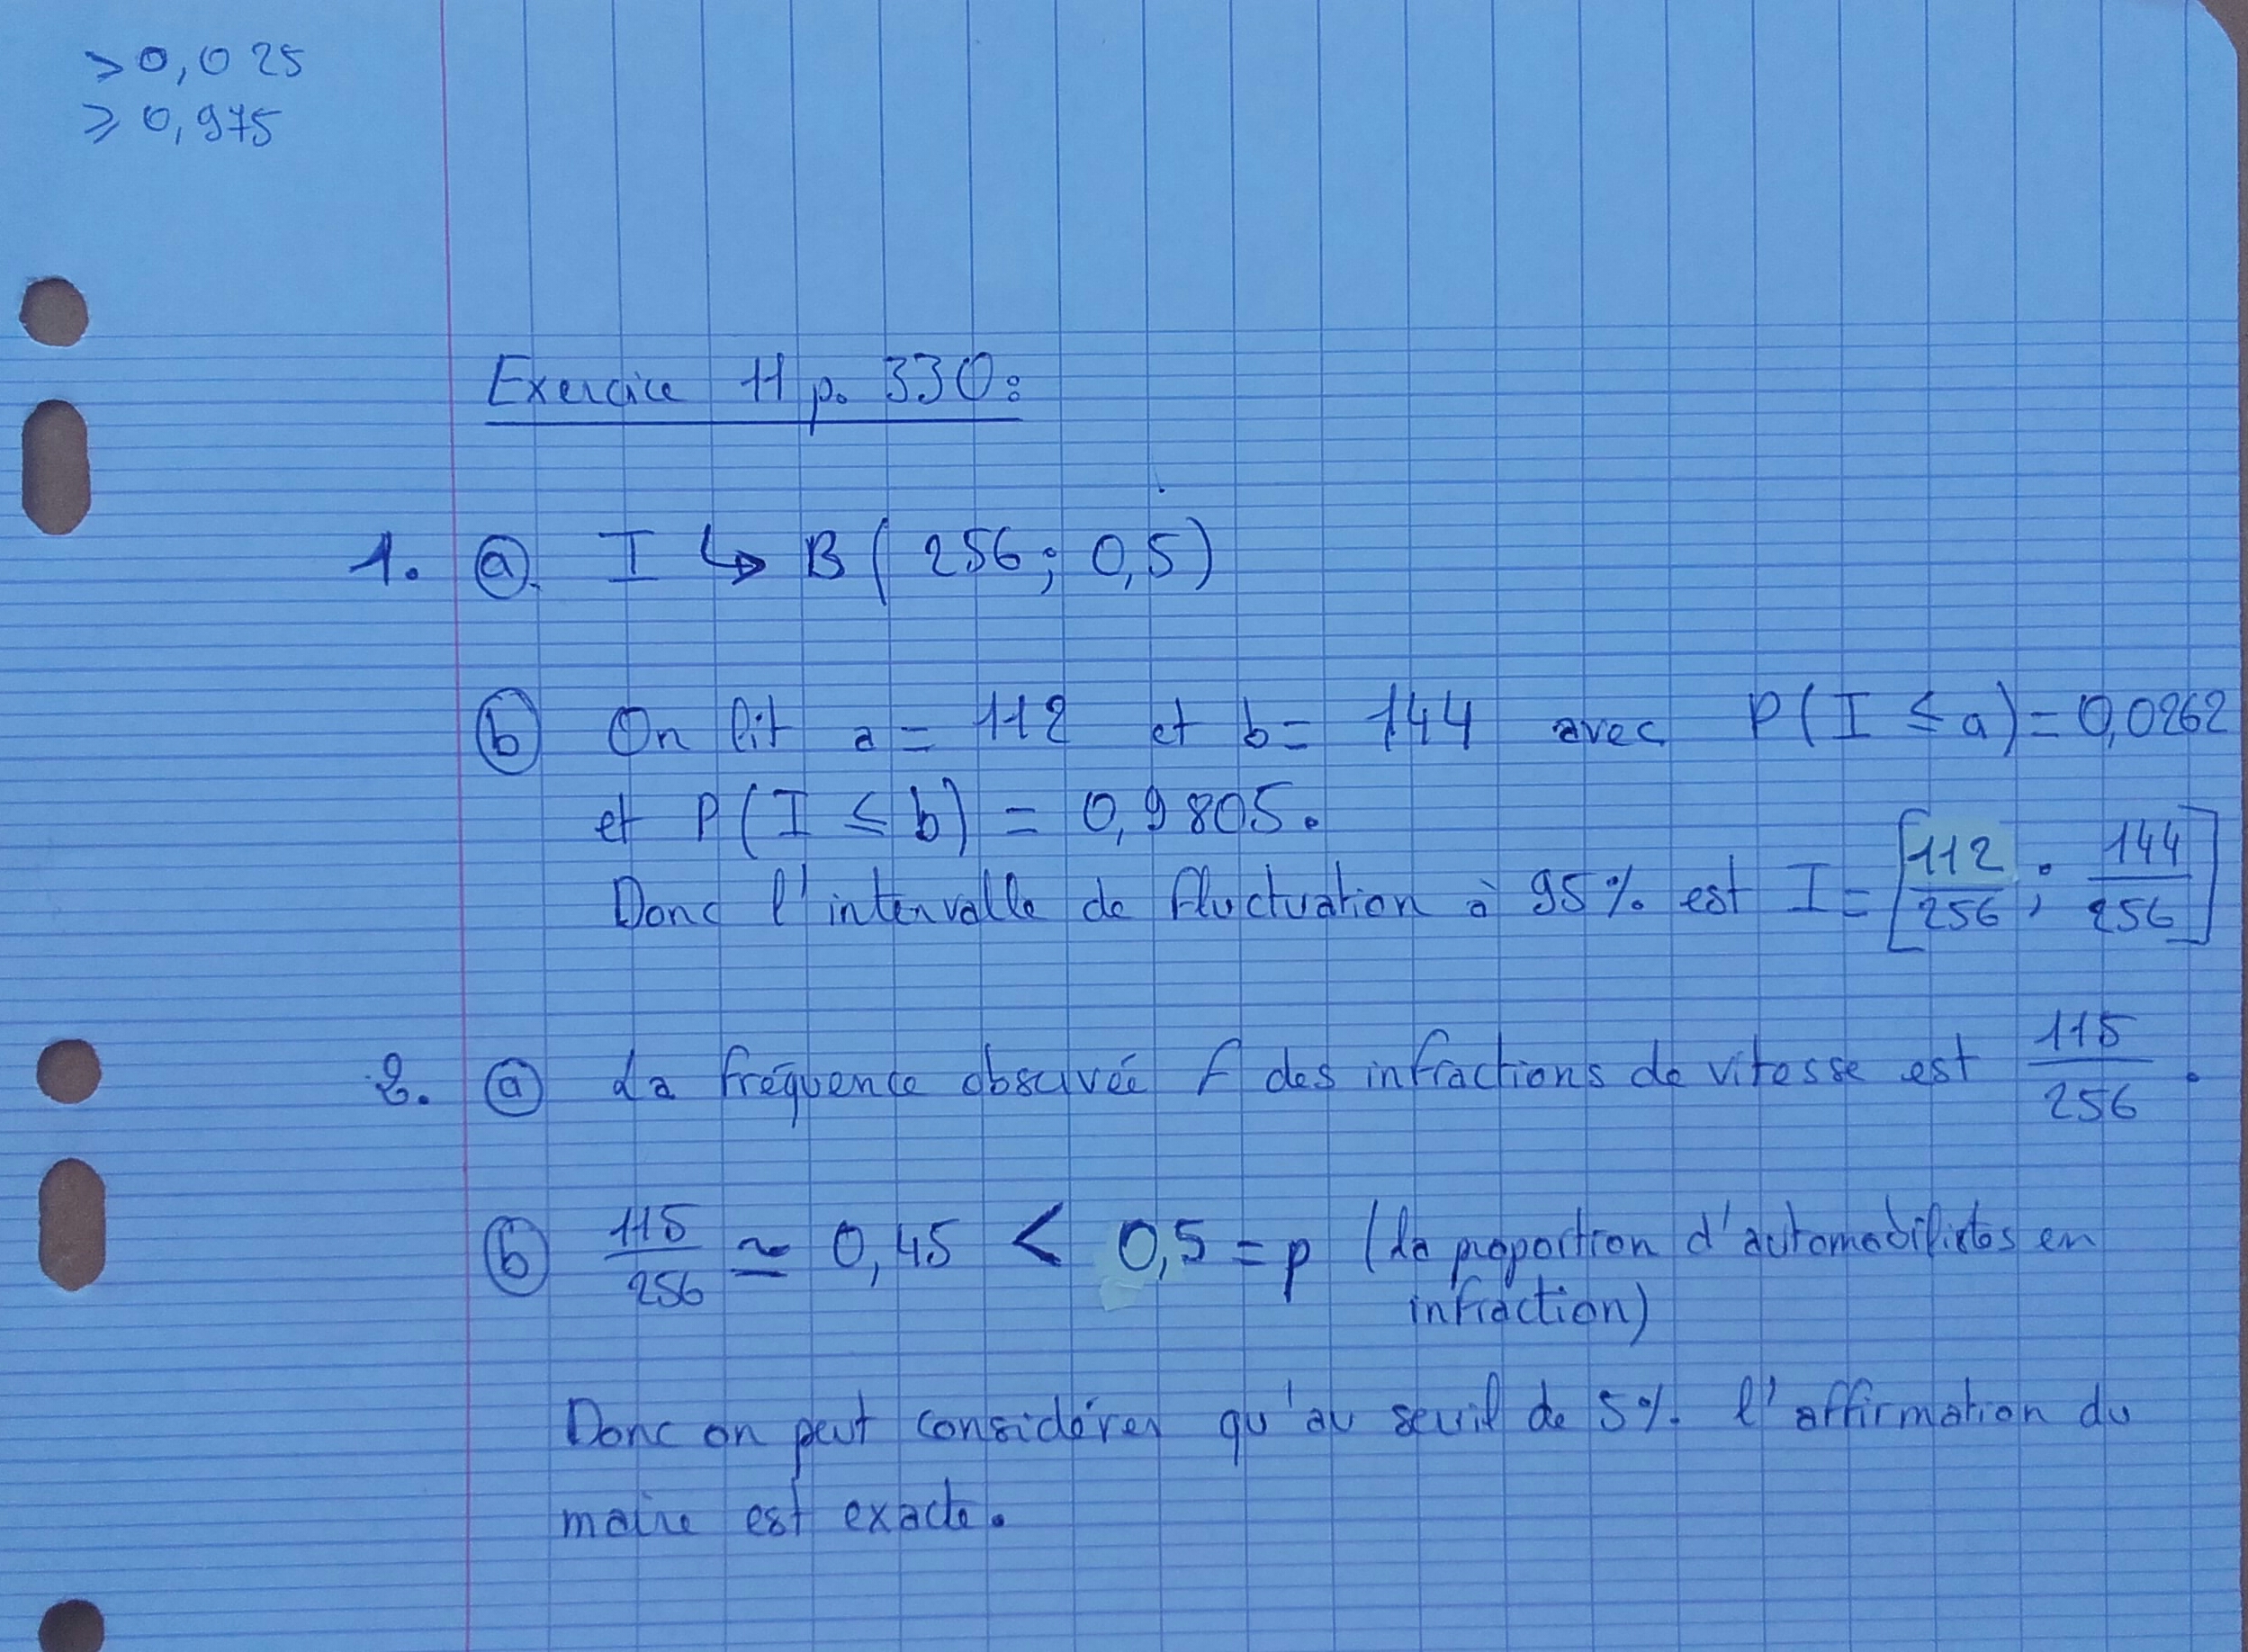 > 0,025
⩾ 0,975
Exercice 11 p. 330:
1. (a). I ↪ B ( 256 ; 0,5 )
(b) On lit a = 112 et b = 144 avec P(I ≤ a) = 0,0262
et P(I ≤ b) = 0,9805.
Donc l'intervalle de fluctuation à 95% est I = [112/256 ; 144/256]
2. (a) La fréquence observée f des infractions de vitesse est 115/256.
(b) 115/256 ≃ 0,45 < 0,5 = p (la proportion d'automobilistes en
infraction)
Donc on peut considérer qu'au seuil de 5% l'affirmation du
maire est exacte.